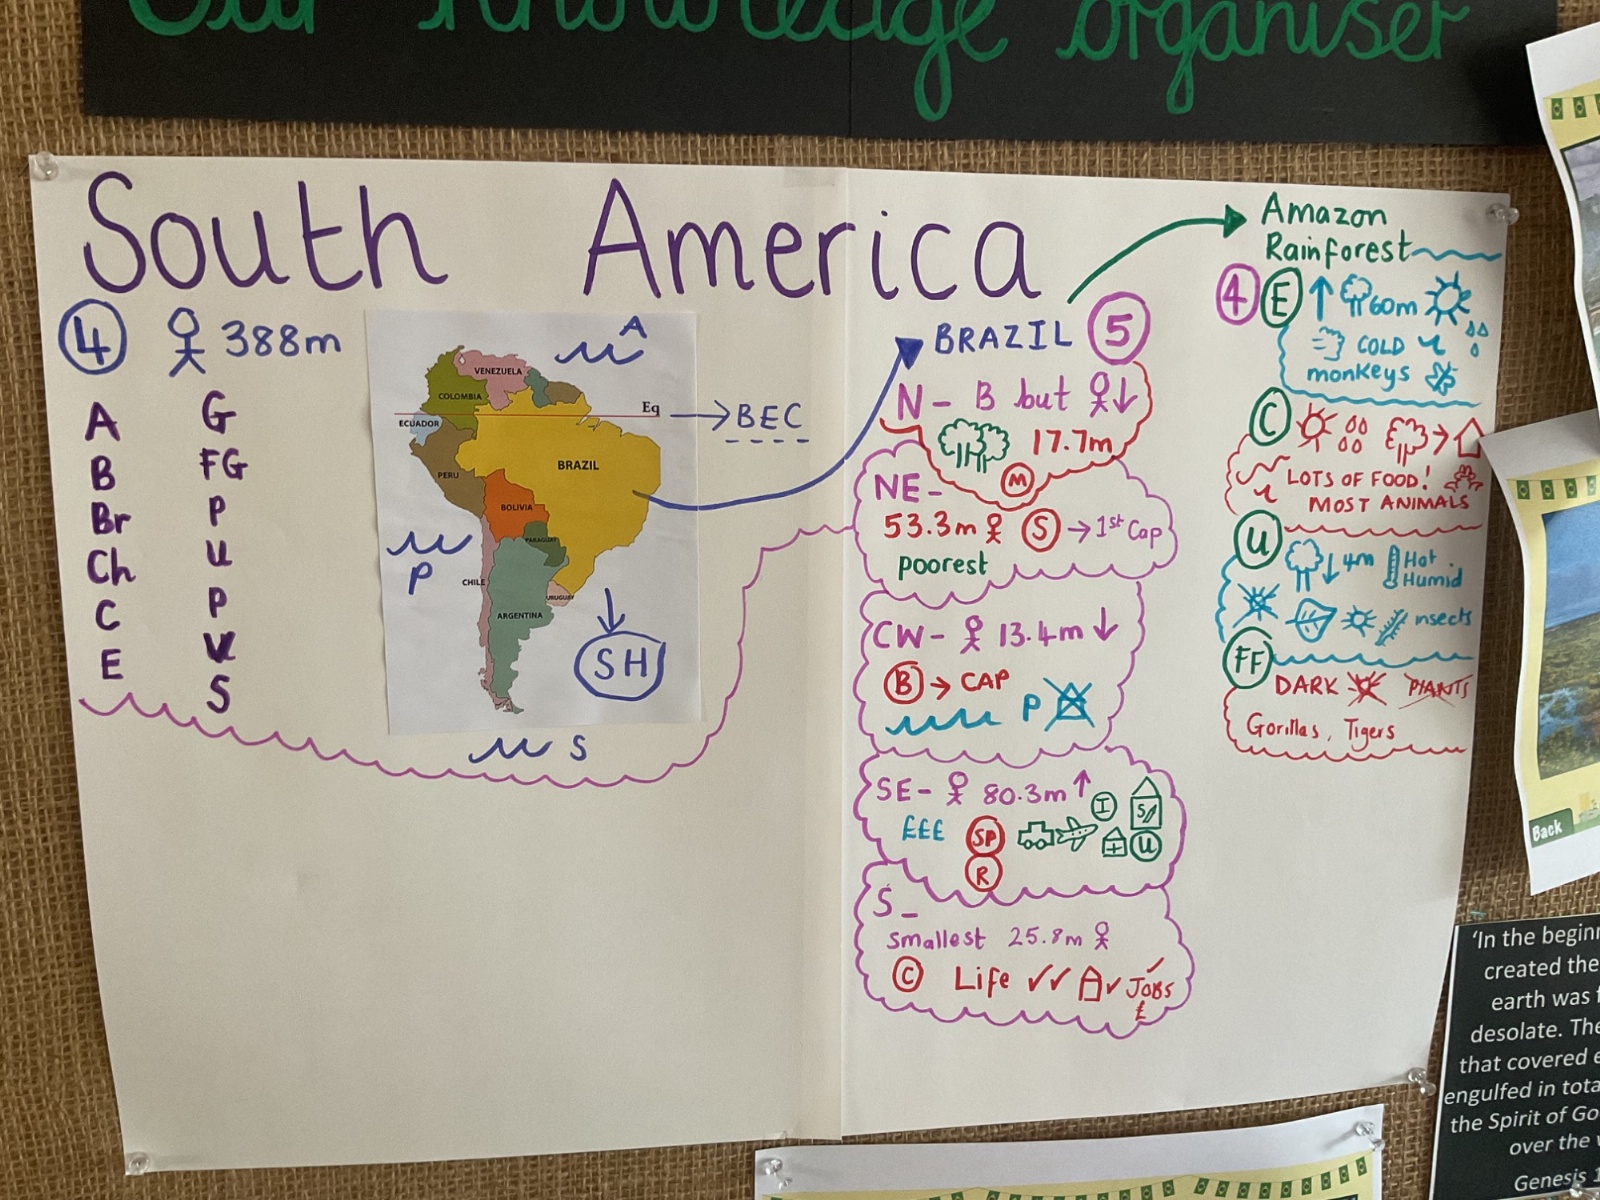 Our knowledge organiser
South America
4 388m
A G
B FG
Br P
Ch U
C P
E V
S
A
VENEZUELA
COLOMBIA
Eq
BEC
ECUADOR
BRAZIL
PERU
BOLIVIA
PARAGUAY
P
CHILE
URUGUAY
ARGENTINA
SH
S
BRAZIL 5
N - B but
17.7m
M
NE-
53.3m S → 1st Cap
poorest
CW- 13.4m
B → CAP
P
SE- 80.3m
I
S
£££ SP U
R
S -
smallest 25.8m
C Life ✓✓ ✓ JOBS ✓
£
Amazon
Rainforest
4 E 60m
COLD
monkeys
C
LOTS OF FOOD!
MOST ANIMALS
U 4m Hot
Humid
insects
FF
DARK PLANTS
Gorillas, Tigers
Back
'In the beginn
created the
earth was f
desolate. The
that covered e
engulfed in tota
the Spirit of Go
over the w
Genesis 1